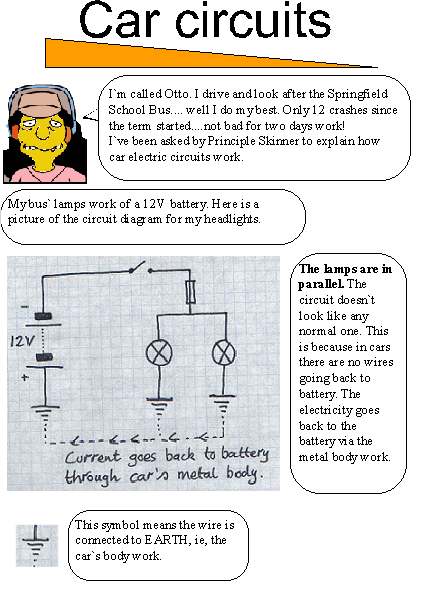 Car circuits
I`m called Otto. I drive and look after the Springfield
School Bus.... well I do my best. Only 12 crashes since
the term started....not bad for two days work!
I`ve been asked by Principle Skinner to explain how
car electric circuits work.
My bus` lamps work of a 12V battery. Here is a
picture of the circuit diagram for my headlights.
-
12V
+
Current goes back to battery
through car's metal body.
The lamps are in
parallel. The
circuit doesn`t
look like any
normal one. This
is because in cars
there are no wires
going back to
battery. The
electricity goes
back to the
battery via the
metal body work.
This symbol means the wire is
connected to EARTH, ie, the
car`s body work.